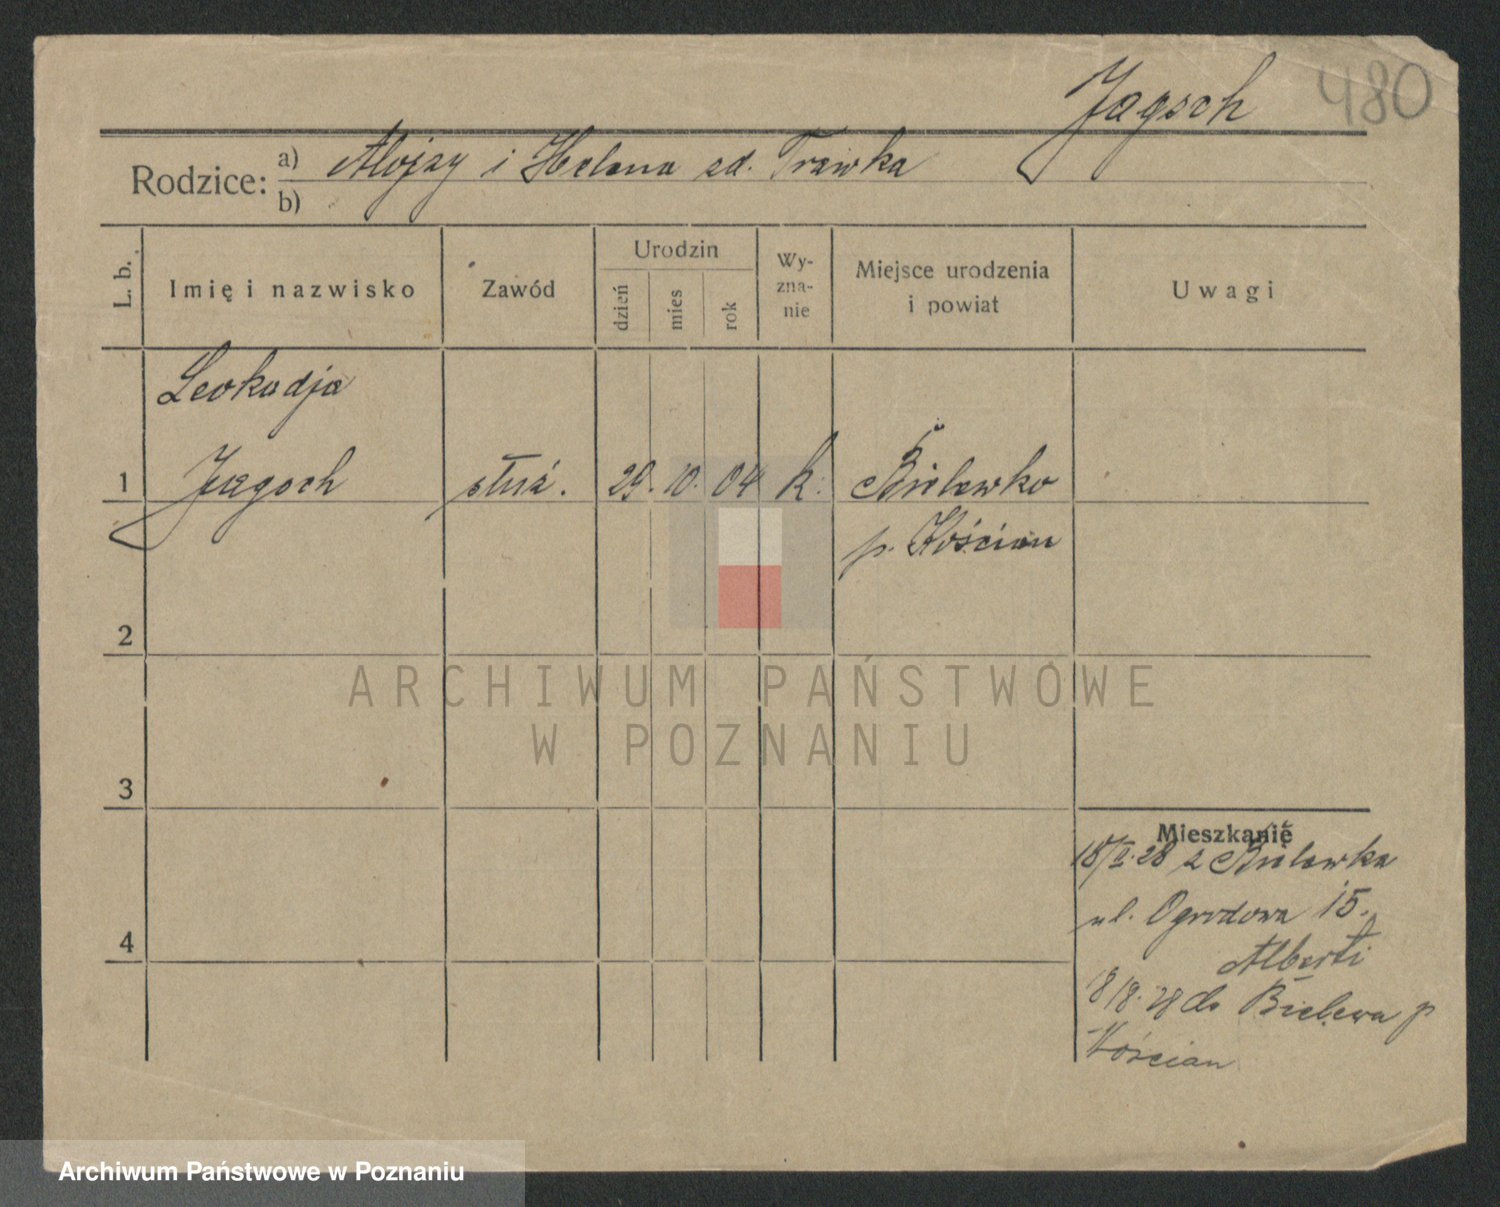 Jagsch 480
Rodzice: a) Alojzy i Helena zd. Trawka
b)
L. b. Imię i nazwisko Zawód Urodzin dzień mies rok Wyznanie Miejsce urodzenia i powiat Uwagi
Leokadja
1 Jagsch służ. 29. 10. 04 k. Bielewko
p. Kościan
2
ARCHIWUM PAŃSTWOWE
W POZNANIU
3
Mieszkanie
z Bielewka
ul. Ogrodowa 15.
4
Alberti
18/8.28 do Bielewa p
Kościan
Archiwum Państwowe w Poznaniu